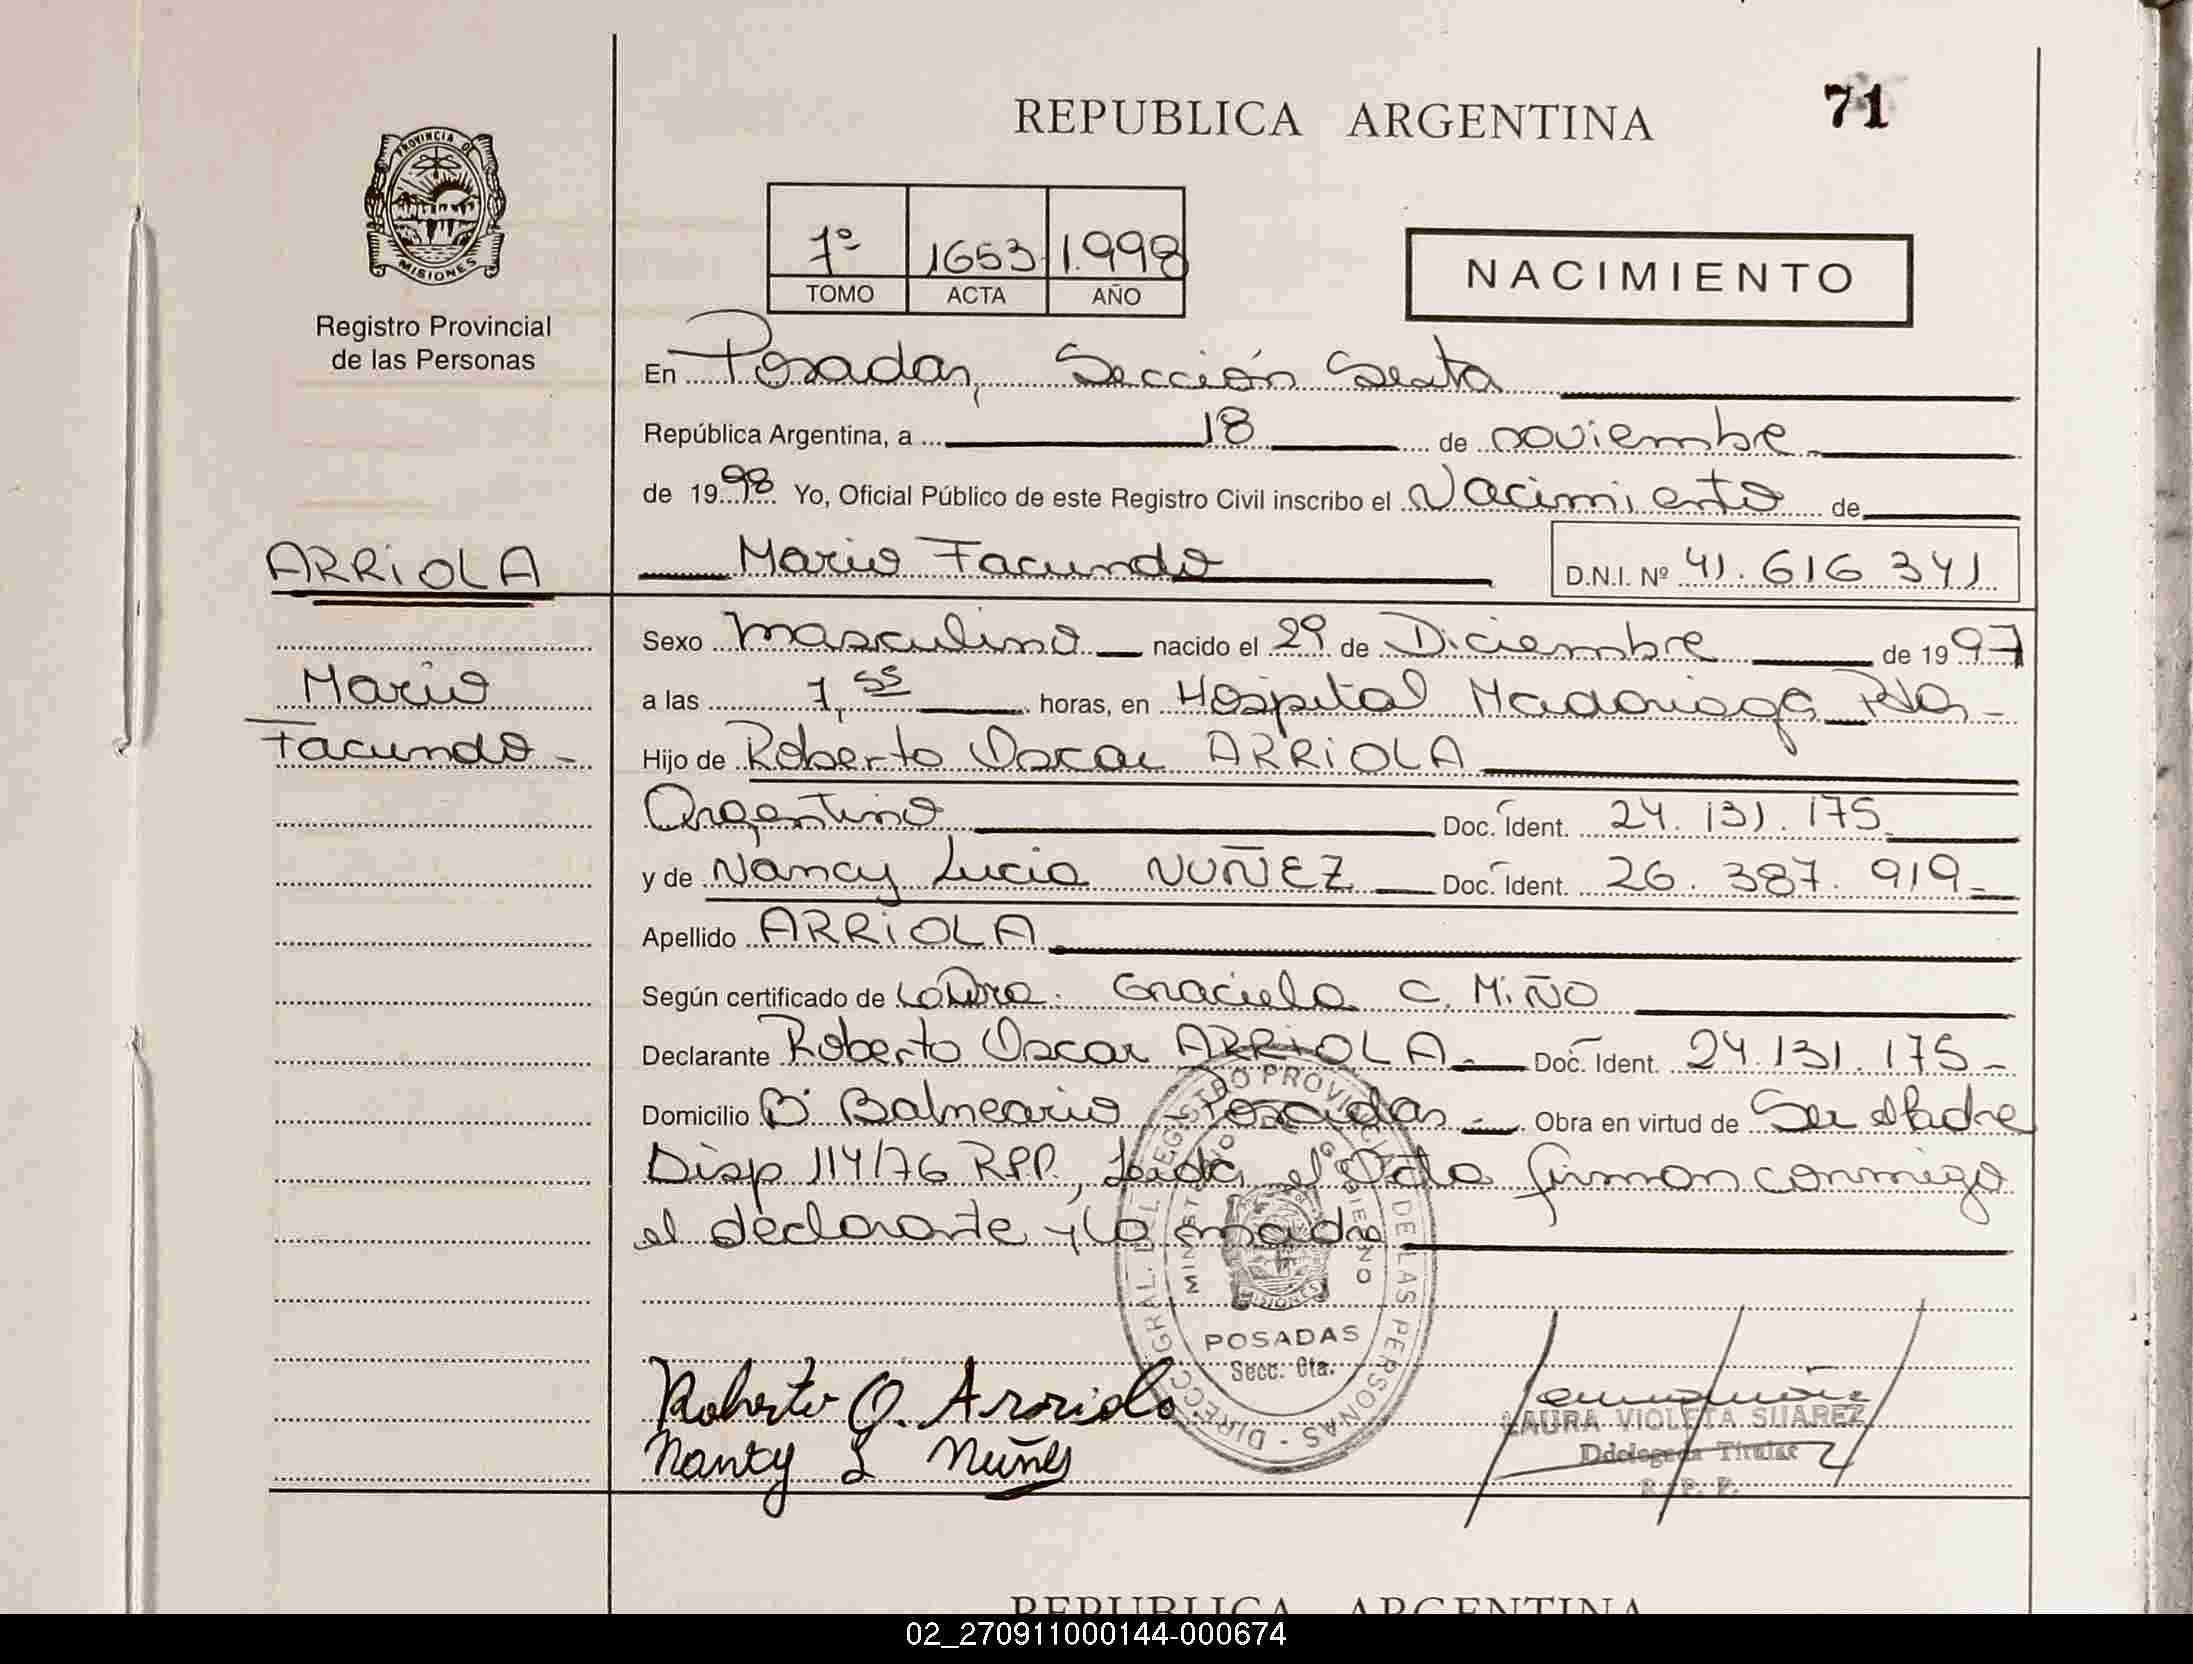 REPUBLICA ARGENTINA
71
PROVINCIA DE
MISIONES
Registro Provincial
de las Personas
1º 1653 1.998
TOMO ACTA AÑO
NACIMIENTO
En Posadas, Sección Sexta
República Argentina, a 18 de noviembre
de 1998 Yo, Oficial Público de este Registro Civil inscribo el Nacimiento de
ARRIOLA
Mario Facundo D.N.I. Nº 41.616 341
Sexo masculino nacido el 29 de Diciembre de 1997
Mario
a las 1,55 horas, en Hospital Madariaga Pdas-
Facundo-
Hijo de Roberto Oscar ARRIOLA
Argentino Doc. Ident. 24.131.175
y de Nancy Lucia NUÑEZ Doc. Ident. 26.387.919-
Apellido ARRIOLA
Según certificado de La Dra. Graciela C. MiÑO
Declarante Roberto Oscar ARRIOLA Doc. Ident. 24.131.175-
Domicilio Bº Balneario Posadas Obra en virtud de Ser el Padre
Disp 114/76 RPP., Leída el Acta firman conmigo
el declarante y la madre
DIRECC. GRAL. DEL REGISTRO PROVINCIAL DE LAS PERSONAS
MINISTERIO GOBIERNO
MISIONES
POSADAS
Secc. 6ta.
Roberto O. Arriola
Nancy L Nuñez
LAURA VIOLETA SUAREZ
Delegada Titular
R. P. P.
REPUBLICA ARGENTINA
02_270911000144-000674